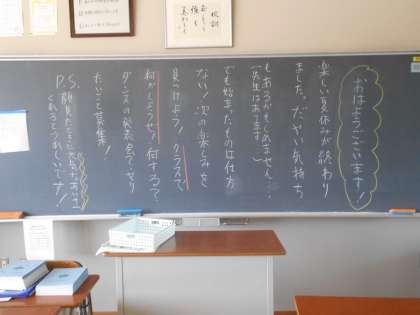 おはようございます!
楽しい夏休みが終わり
ました。だやい気持ち
もあるかもしれません…
(先生はあります)
でも始まったものは仕方
ない!次の楽しみを
見つけよう!クラスで
何かしようぜ!何する?
ダンスの発表会でやり
たいこと募集!
P.S. 顔見たときに元気なあいさつ
くれるとうれしいです!
校訓